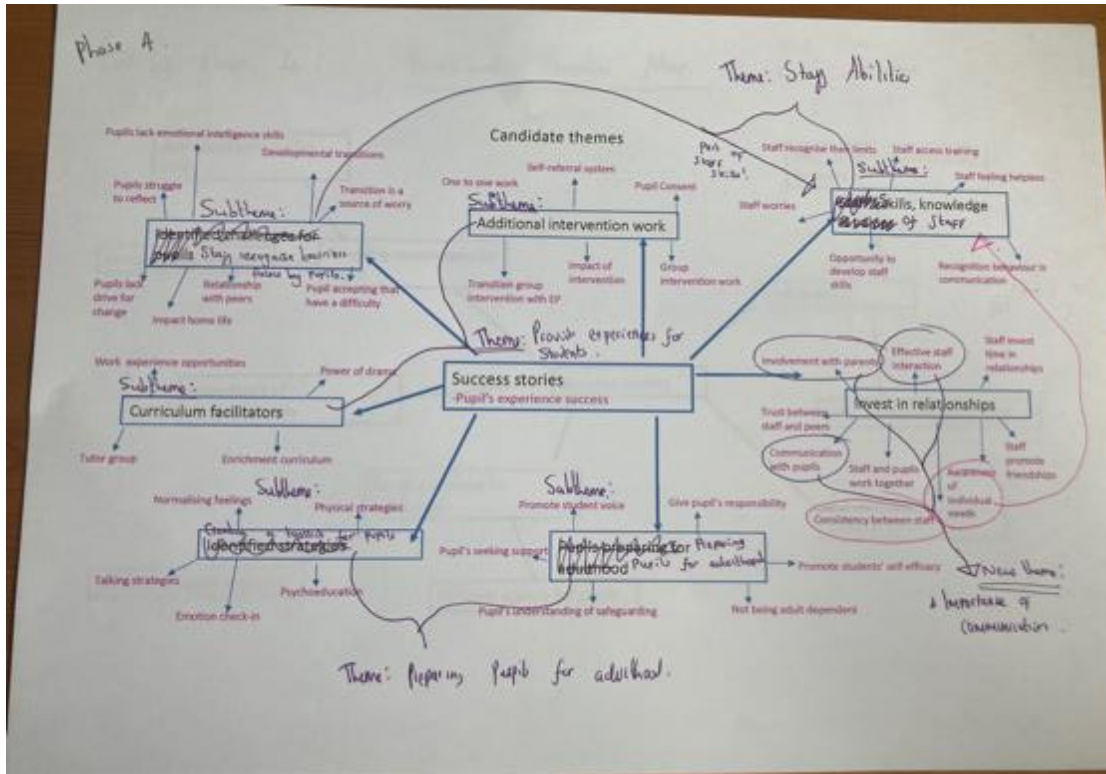 Phase 4.
Theme: Staff Abilities
Candidate themes
Pupils lack emotional intelligence skills
Developmental transitions
Pupils struggle
to reflect
Transition is a
source of worry
Subtheme:
Staff recognise barriers
faced by pupils.
Pupils lack
drive for
change
Relationship
with peers
Pupil accepting that
have a difficulty
Impact home life
Self-referral system
One to one work
Pupil Consent
Subtheme:
-Additional intervention work
Transition group
intervention with EP
Impact of
intervention
Group
intervention work
part of
staff
skills!
Staff recognise their limits
Staff access training
Subtheme:
Staff feeling helpless
skills, knowledge
of staff
Staff worries
Opportunity to
develop staff
skills
Recognition behaviour is
communication
Theme: Provide experiences for
students.
Work experience opportunities
Power of drama
Subtheme:
Curriculum facilitators
Tutor group
Enrichment curriculum
Success stories
-Pupil's experience success
Involvement with parents
Effective staff
interaction
Staff invest
time in
relationships
Invest in relationships
Trust between
staff and peers
Communication
with pupils
Staff and pupils
work together
Awareness
of
individual
needs
Staff
promote
friendships
Consistency between staff
New theme:
Importance of
communication.
Normalising feelings
Subtheme:
Physical strategies
for pupils
Identified strategies
Talking strategies
Emotion check-in
Psychoeducation
Subtheme:
Promote student voice
Give pupil's responsibility
Pupil's seeking support
Pupils preparing for
adulthood
Preparing
Pupils for adulthood
Promote students' self efficacy
Pupil's understanding of safeguarding
Not being adult dependent
Theme: Preparing Pupils for adulthood.